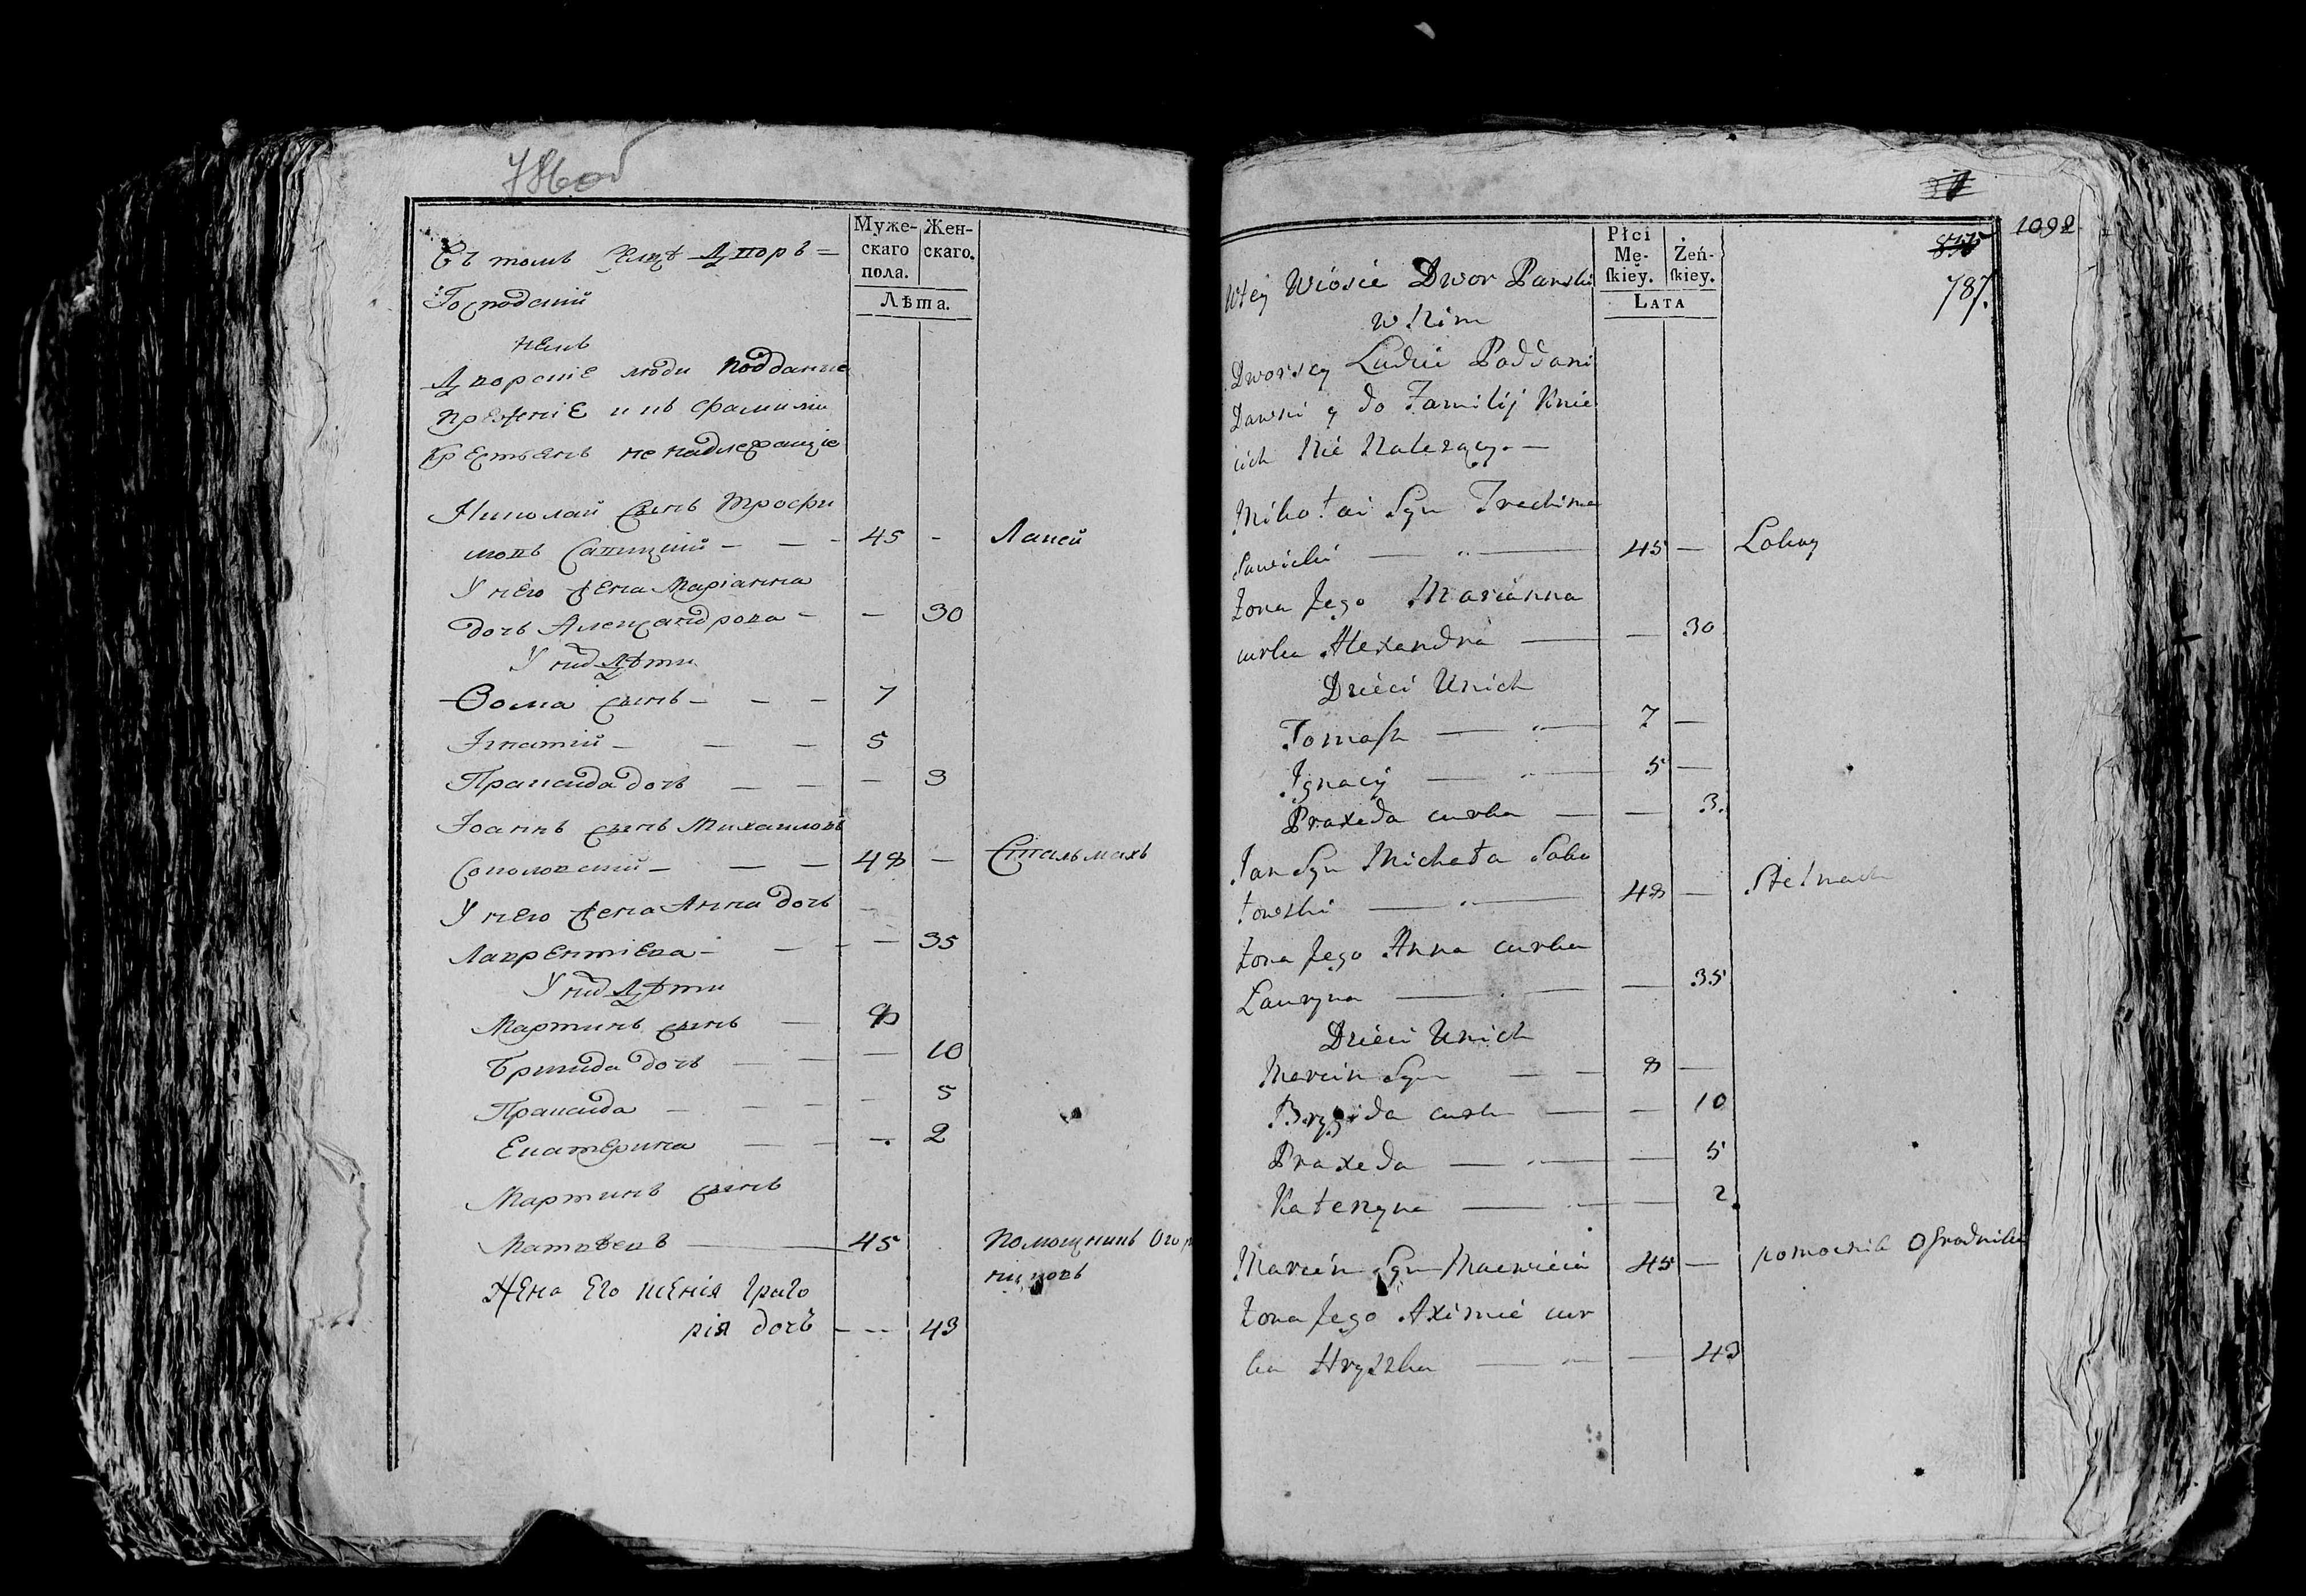 786 об
Муже-
скаго
пола.
Жен-
скаго.
Лѣта.
Въ томъ Селѣ Дворъ =
Господскій
немъ
Дворскіе люди подданые
прежніе и въ фамиліи
Крестьянъ не надлежащіе
Николай сынъ Трофи
мовъ Савицкій — — - 45 - Лакей
У него жена Маріанна
дочь Александрова - — 30
У нид Дѣти
Ѳома сынъ — — — 7
Игнатій — — — 5
Праксида дочь — — — 3
Іоаннъ сынъ Михаиловъ
Соколовскій — — — 48 — Стальмахъ
У него жена Анна дочь
Лаврентіева - — - — 35
У нид Дѣти
Мартинъ сынъ — 8
Бригида дочь — — — 10
Праксида — — — - 5
Екатерина — — —. 2
Мартинъ сынъ
Матвѣевъ —— 45 помощникъ Ого
Жена Его Ксенія Григо
рія дочь - -- 43
1092
835
787.
Płci
Mę-
ſkiey.
Żeń-
ſkiey.
LATA
Wtey Wiosie Dwor Panski
w Nim
Dworscy Ludzie Poddani
Dawni y do Familij Knie
cich Nie Nalezący. —
Mikołai Syn Trochima
Sawicki — „ — 45 — Lokay
Zona Jego Marianna
curka Alexandra — — 30
Dzieci Unich
Tomaſz — „ — 7 —
Ignacÿ — „ — 5 —
Praxeda curka — — 3.
Jan Syn Michała Soko
łowski — „ — 48 — Stelmach
Zona Jego Anna curka
Lauryna — . — — 35
Dzieci Unich
Marcin Syn — — 8 —
Brygida curk — — 10
Praxeda — „ — — 5
Kateryna — . — — 2
Marcin Syn Macwieia 45 — pomocnik Ogrodnika
Zona Jego Aximie cur
ka Hryszka — „ — 43